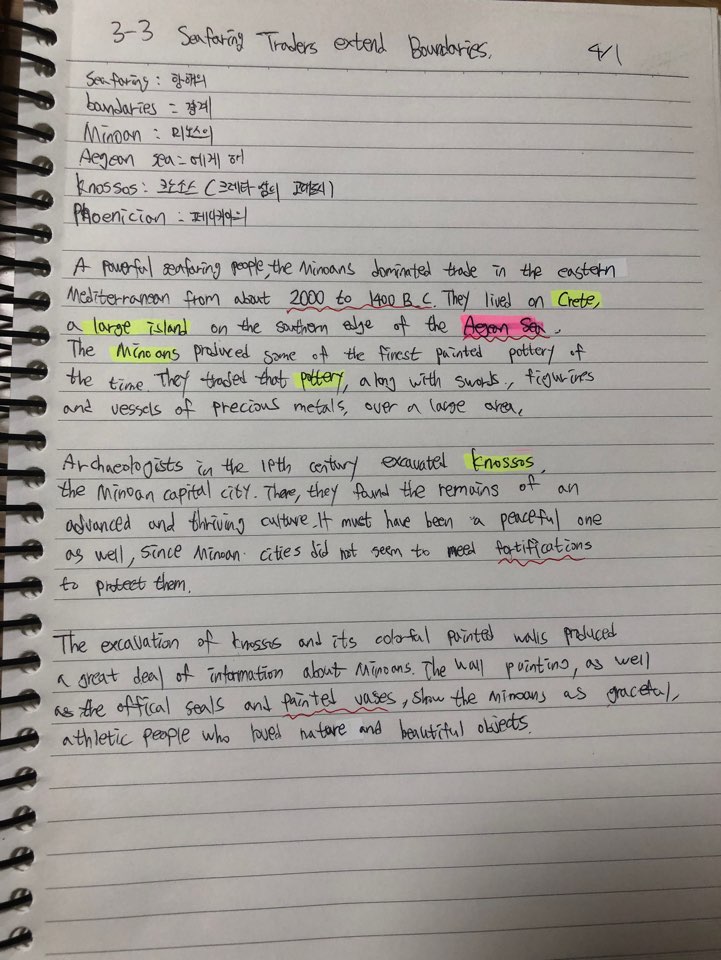 3-3 Seafaring Traders extend Boundaries. 4/1
Seafaring : 항해의
boundaries = 경계
Minoan : 미노스의
Aegean sea = 에게 해
Knossos : 크노소스 (크레타 섬의 고대도시)
Phoenician = 페니키아의
A powerful seafaring people, the Minoans dominated trade in the eastern
Mediterranean from about 2000 to 1400 B.C. They lived on Crete,
a large island on the southern edge of the Aegean Sea.
The Minoans produced some of the finest painted pottery of
the time. They traded that pottery, along with swords, figurines
and vessels of precious metals, over a large area.
Archaeologists in the 19th century excavated Knossos,
the Minoan capital city. There, they found the remains of an
advanced and thriving culture. It must have been a peaceful one
as well, since Minoan cities did not seem to need fortifications
to protect them.
The excavation of Knossos and its colorful painted walls produced
a great deal of information about Minoans. The wall painting, as well
as the offical seals and painted vases, show the minoans as graceful,
athletic people who loved nature and beautiful objects.